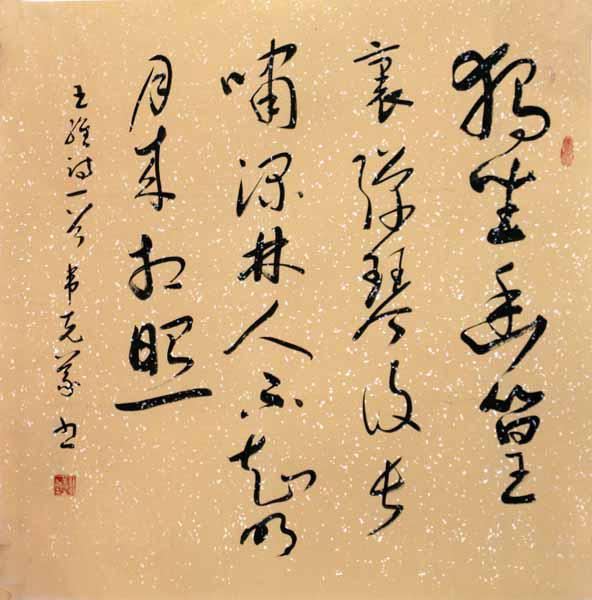 獨坐幽篁
裏彈琴復長
嘯深林人不知明
月来相照
王維詩一首 韋克義书